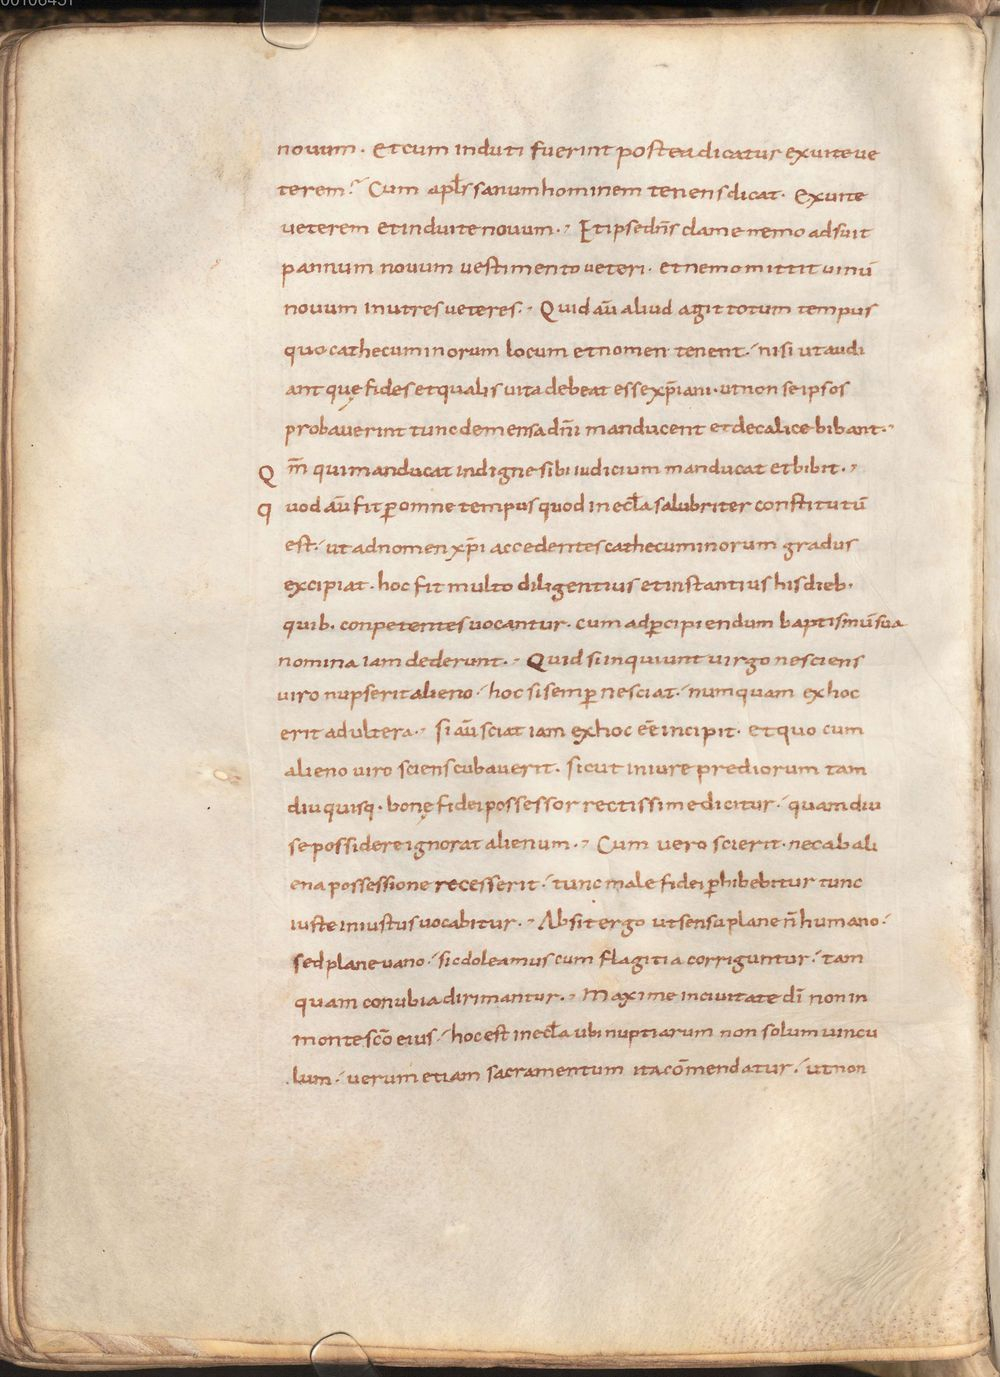 00106451
nouum · Et cum induti fuerint postea dicatur exuite ue
terem? Cum apl̅s sanum hominem tenens dicat · Exuite
ueterem et induite nouum · Et ipse dn̅s clame nemo adsuit
pannum nouum uestimento ueteri · et nemo mittit uinu̅
nouum in utres ueteres · Quid au̅ aliud agit totum tempus
quo cathecuminorum locum et nomen tenent · nisi ut audi
ant quę fides et qualis uita debeat esse xp̅iani · ut non se ipsos
probauerint tunc de mensa dn̅i manducent et de calice bibant ·
Qm̅ qui manducat indigne sibi iudicium manducat et bibit ·
quod au̅ fit ꝑ omne tempus quod in eccl̅a salubriter constitutu̅
est · ut ad nomen xp̅i accedentes cathecuminorum gradus
excipiat · hoc fit multo diligentius et instantius his dieb ·
quib · conpetentes uocantur · cum ad ꝑcipiendum baptismu̅ sua
nomina iam dederunt · Quid si inquiunt uirgo nesciens
uiro nupserit alieno · hoc si semꝑ nesciat · numquam ex hoc
erit adultera · si au̅ sciat iam ex hoc ee̅ incipit · et quo cum
alieno uiro sciens cubauerit · sicut in iure prediorum tam
diu quisq · bonę fidei possessor rectissime dicitur · quamdiu
se possidere ignorat alienum · Cum uero scierit · nec ab ali
ena possessione recesserit · tunc male fidei ꝑhibebitur tunc
iuste iniustus uocabitur · Absit ergo ut sensu plane n̅ humano ·
sed plane uano · sic doleamus cum flagitia corriguntur · tam
quam conubia dirimantur · Maxime in ciuitate di̅ non in
monte sc̅o eius · hoc est in eccl̅a ubi nuptiarum non solum uincu
lum · uerum etiam sacramentum ita co̅mendatur · ut non